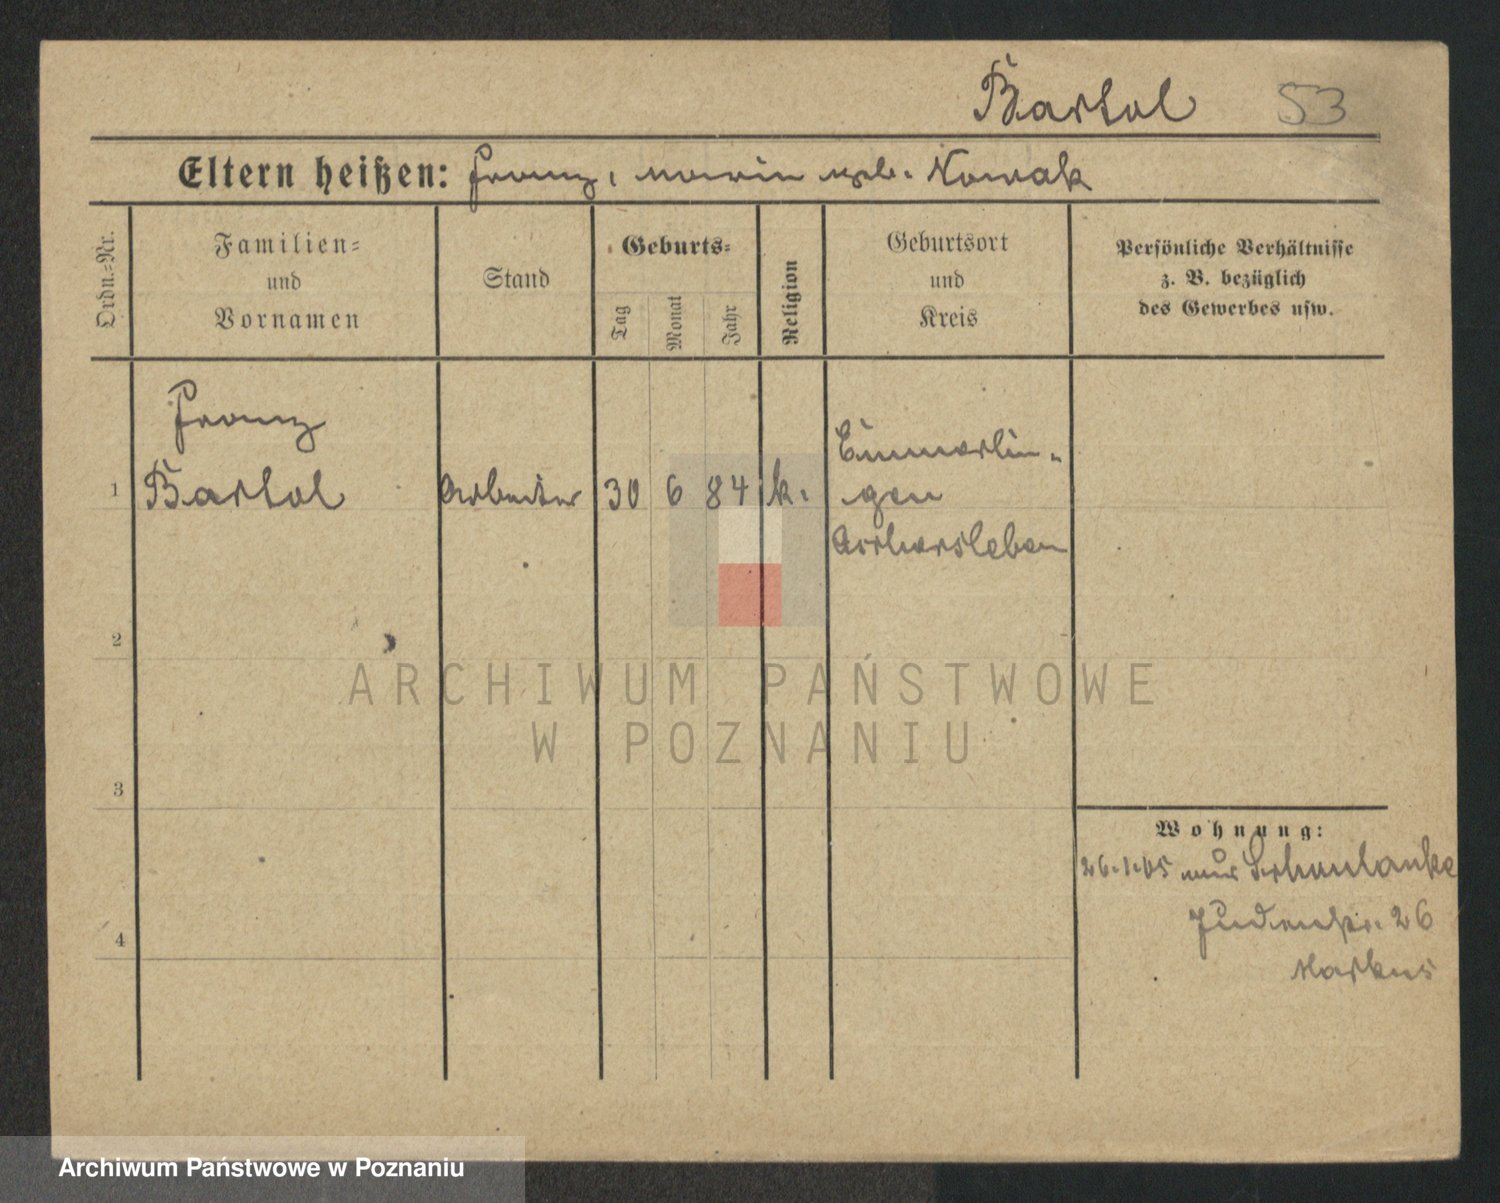 Bartol 53
Eltern heißen: Franz, Maria geb. Nowak
Ordn.-Nr.
Familien-
und
Vornamen
Stand
Geburts-
Tag
Monat
Jahr
Religion
Geburtsort
und
Kreis
Persönliche Verhältnisse
z. B. bezüglich
des Gewerbes usw.
Franz
1 Bartol Arbeiter 30 6 84 k.
Emmerlin-
gen
Aschersleben
2
3
4
Wohnung:
26.1.05 Schönlanke
Judenstr. 26
Markus
ARCHIWUM PAŃSTWOWE
W POZNANIU
Archiwum Państwowe w Poznaniu